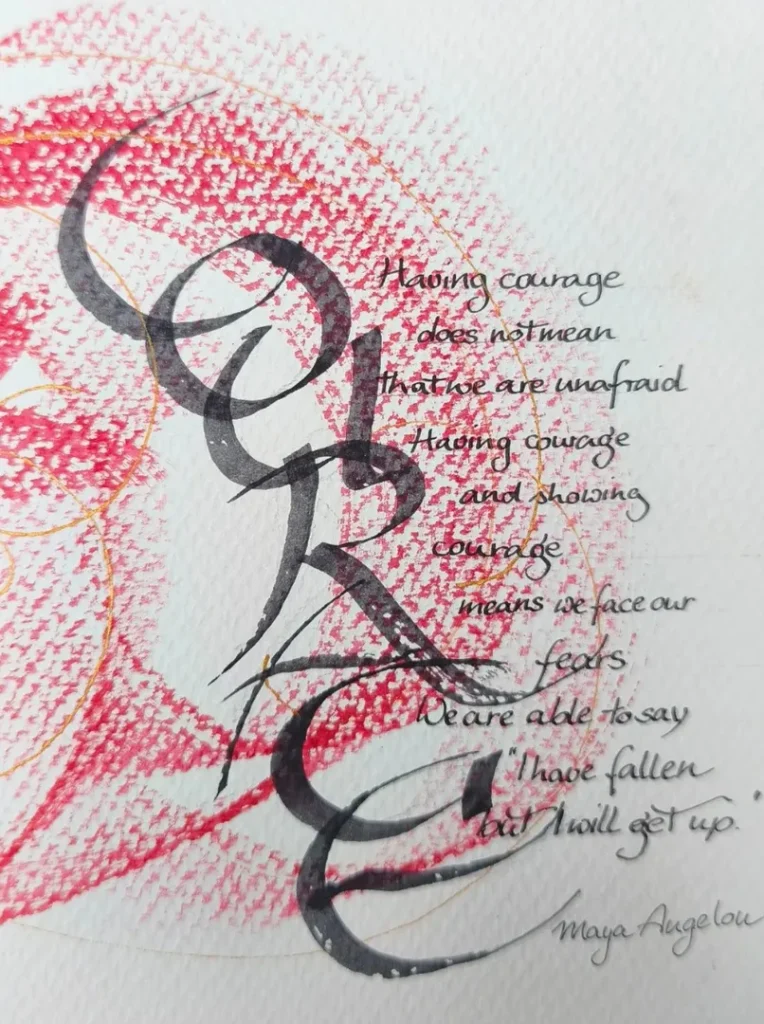 COURAGE
Having courage
does not mean
that we are unafraid
Having courage
and showing
courage
means we face our
fears
We are able to say
"I have fallen
but I will get up."
Maya Angelou